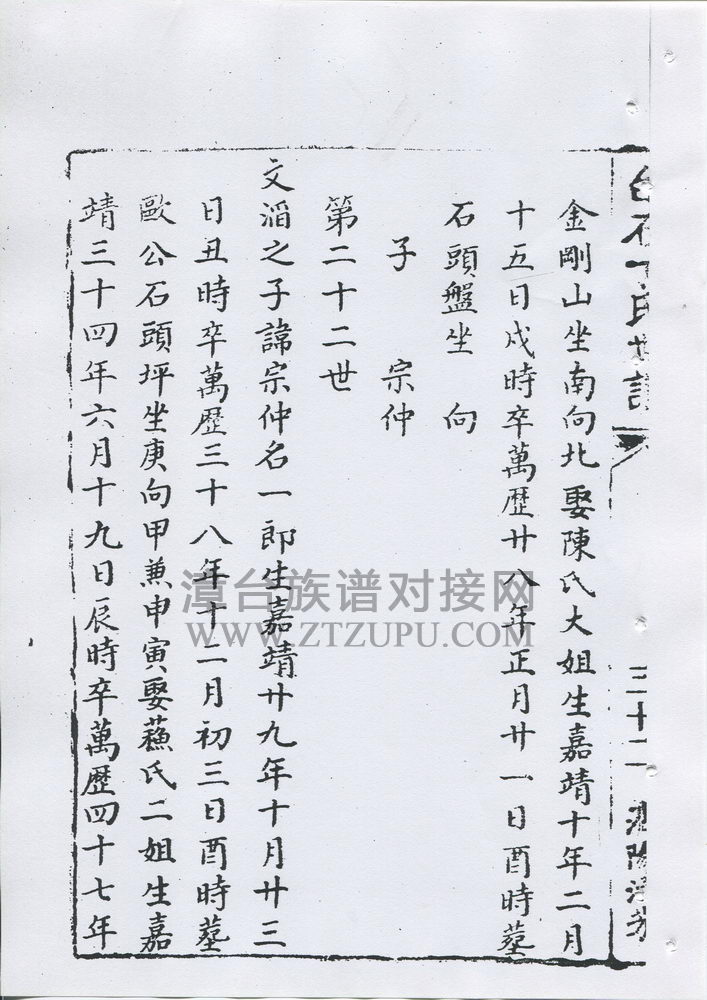 金剛山坐南向北娶陳氏大姐生嘉靖十年二月
十五日戍時卒萬歷廿八年正月廿一日酉時塟
石頭盤坐　向
子　宗仲
第二十二世
文滔之子諱宗仲名一郎生嘉靖廿九年十月廿三
日丑時卒萬歷三十八年十二月初三日酉時塟
歐公石頭坪坐庚向甲兼申寅娶蘓氏二姐生嘉
靖三十四年六月十九日辰時卒萬歷四十七年
三十二
漳台族谱对接网
WWW.ZTZUPU.COM